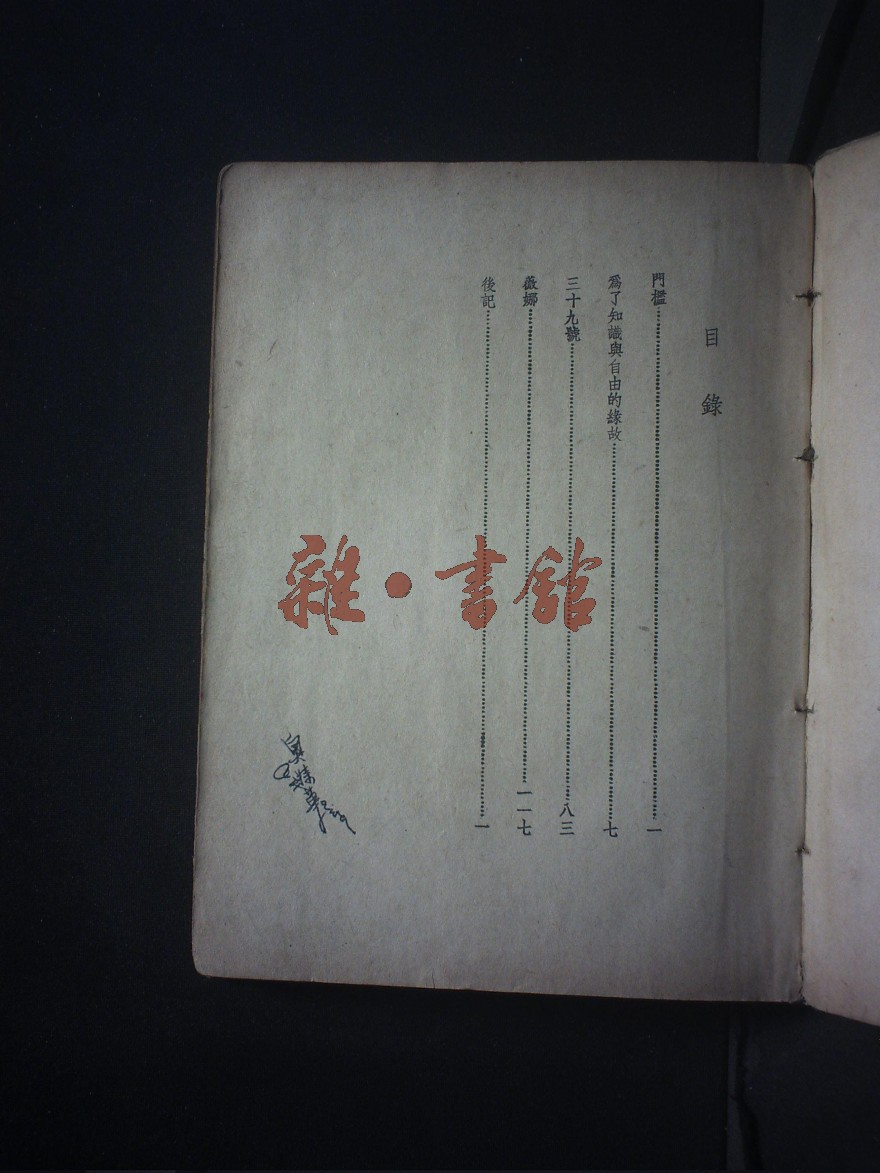 目錄
門檻……一
爲了知識與自由的緣故……七
三十九號……八三
薇娜……一一七
後記……一
雜·書館